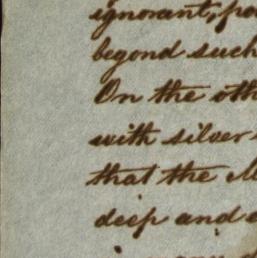 ignorant, po
beyond such
On the oth
with silver
that the M
deep and